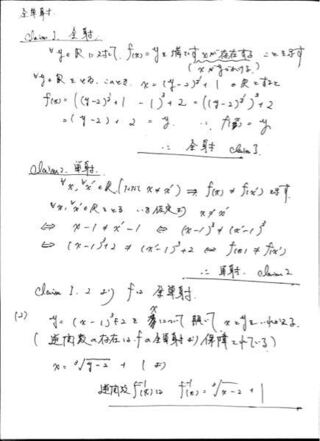 全単射
Claim 1. 全射.
∀y∈R に対して, f(x)=y を満たすxが存在することを示す
(xが見つけれる)
∀y∈R とる. このとき, x = (y-2)^{1/3} + 1 ∈R とすると
f(x) = ((y-2)^{1/3} + 1 - 1)^3 + 2 = ((y-2)^{1/3})^3 + 2
= (y-2) + 2 = y ∴ f(x) = y
∴ 全射 Claim 1.
Claim 2. 単射.
∀x, ∀x'∈R (ただし x≠x') ⇒ f(x) ≠ f(x') を示す.
∀x, ∀x'∈R とする 仮定より x≠x'
⇔ x-1 ≠ x'-1 ⇔ (x-1)^3 ≠ (x'-1)^3
⇔ (x-1)^3+2 ≠ (x'-1)^3+2 ⇔ f(x) ≠ f(x')
∴ 単射. Claim 2
Claim 1. 2 より f は 全単射.
(2) y = (x-1)^3+2 を xについて 解いて xとyを いれかえる.
(逆関数の存在は fの全単射より 保障されている)
x = ∛y-2 + 1 より
逆関数 f^{-1}(x) は f^{-1}(x) = ∛x-2 + 1